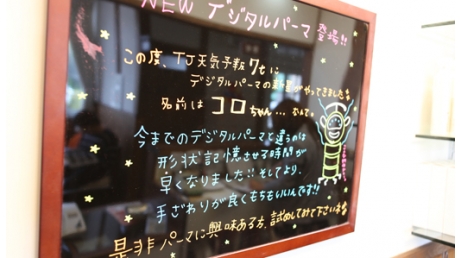 NEW デジタルパーマ 登場!!
この度、TJ天気予報 7tに
デジタルパーマの がやってきました
名前は コロちゃん... なんて。
今までのデジタルパーマと違うのは
形状記憶させる時間が
早くなりました!! そしてより、
手ざわりが良くもちもいいんです!!
是非パーマに興味ある方、試してみて下さいネ